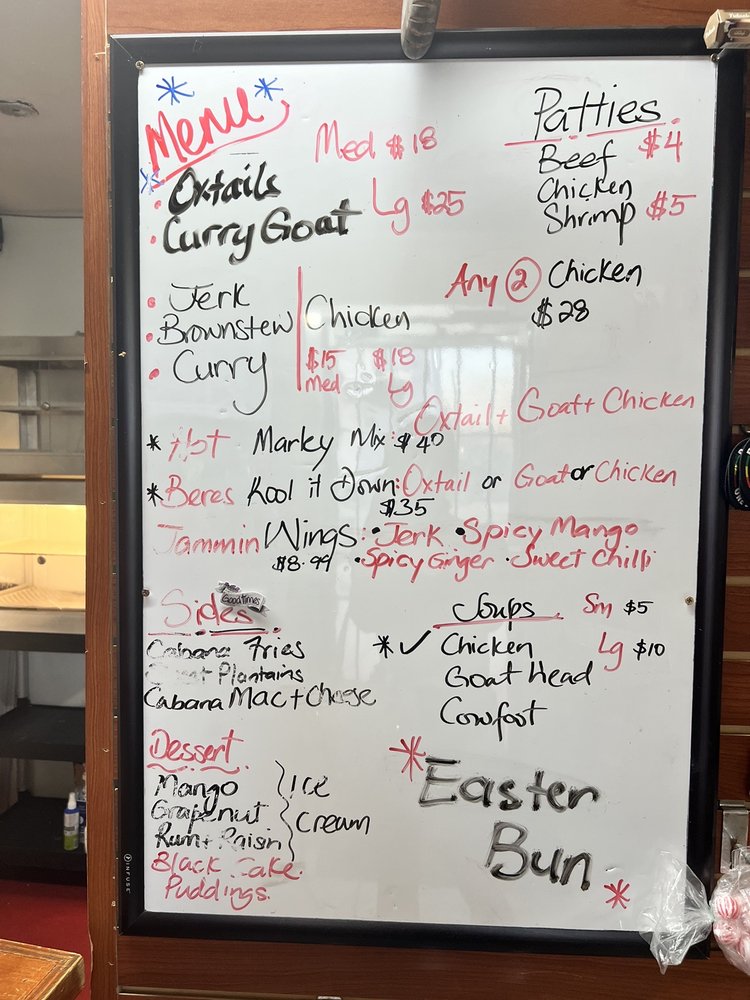 Menu
Med $18
• Oxtails
Lg $25
• Curry Goat
Patties
Beef $4
Chicken
Shrimp $5
Any 2 Chicken
$28
• Jerk
• Brownstew Chicken
• Curry
$15 $18
Med Lg
Oxtail + Goat + Chicken
* Hot Marley Mix: $40
* Beres Kool it Down: Oxtail or Goat or Chicken
$35
Jammin Wings: • Jerk • Spicy Mango
$8.99 • Spicy Ginger • Sweet Chilli
Good times
Sides
Cabana Fries
Plantains
Cabana Mac + Cheese
Soups Sm $5
* ✓ Chicken Lg $10
Goat Head
Cowfoot
Dessert
Mango
Grapenut
Rum + Raisin
Ice
Cream
Black Cake
Puddings.
* Easter
Bun *
INFUSE